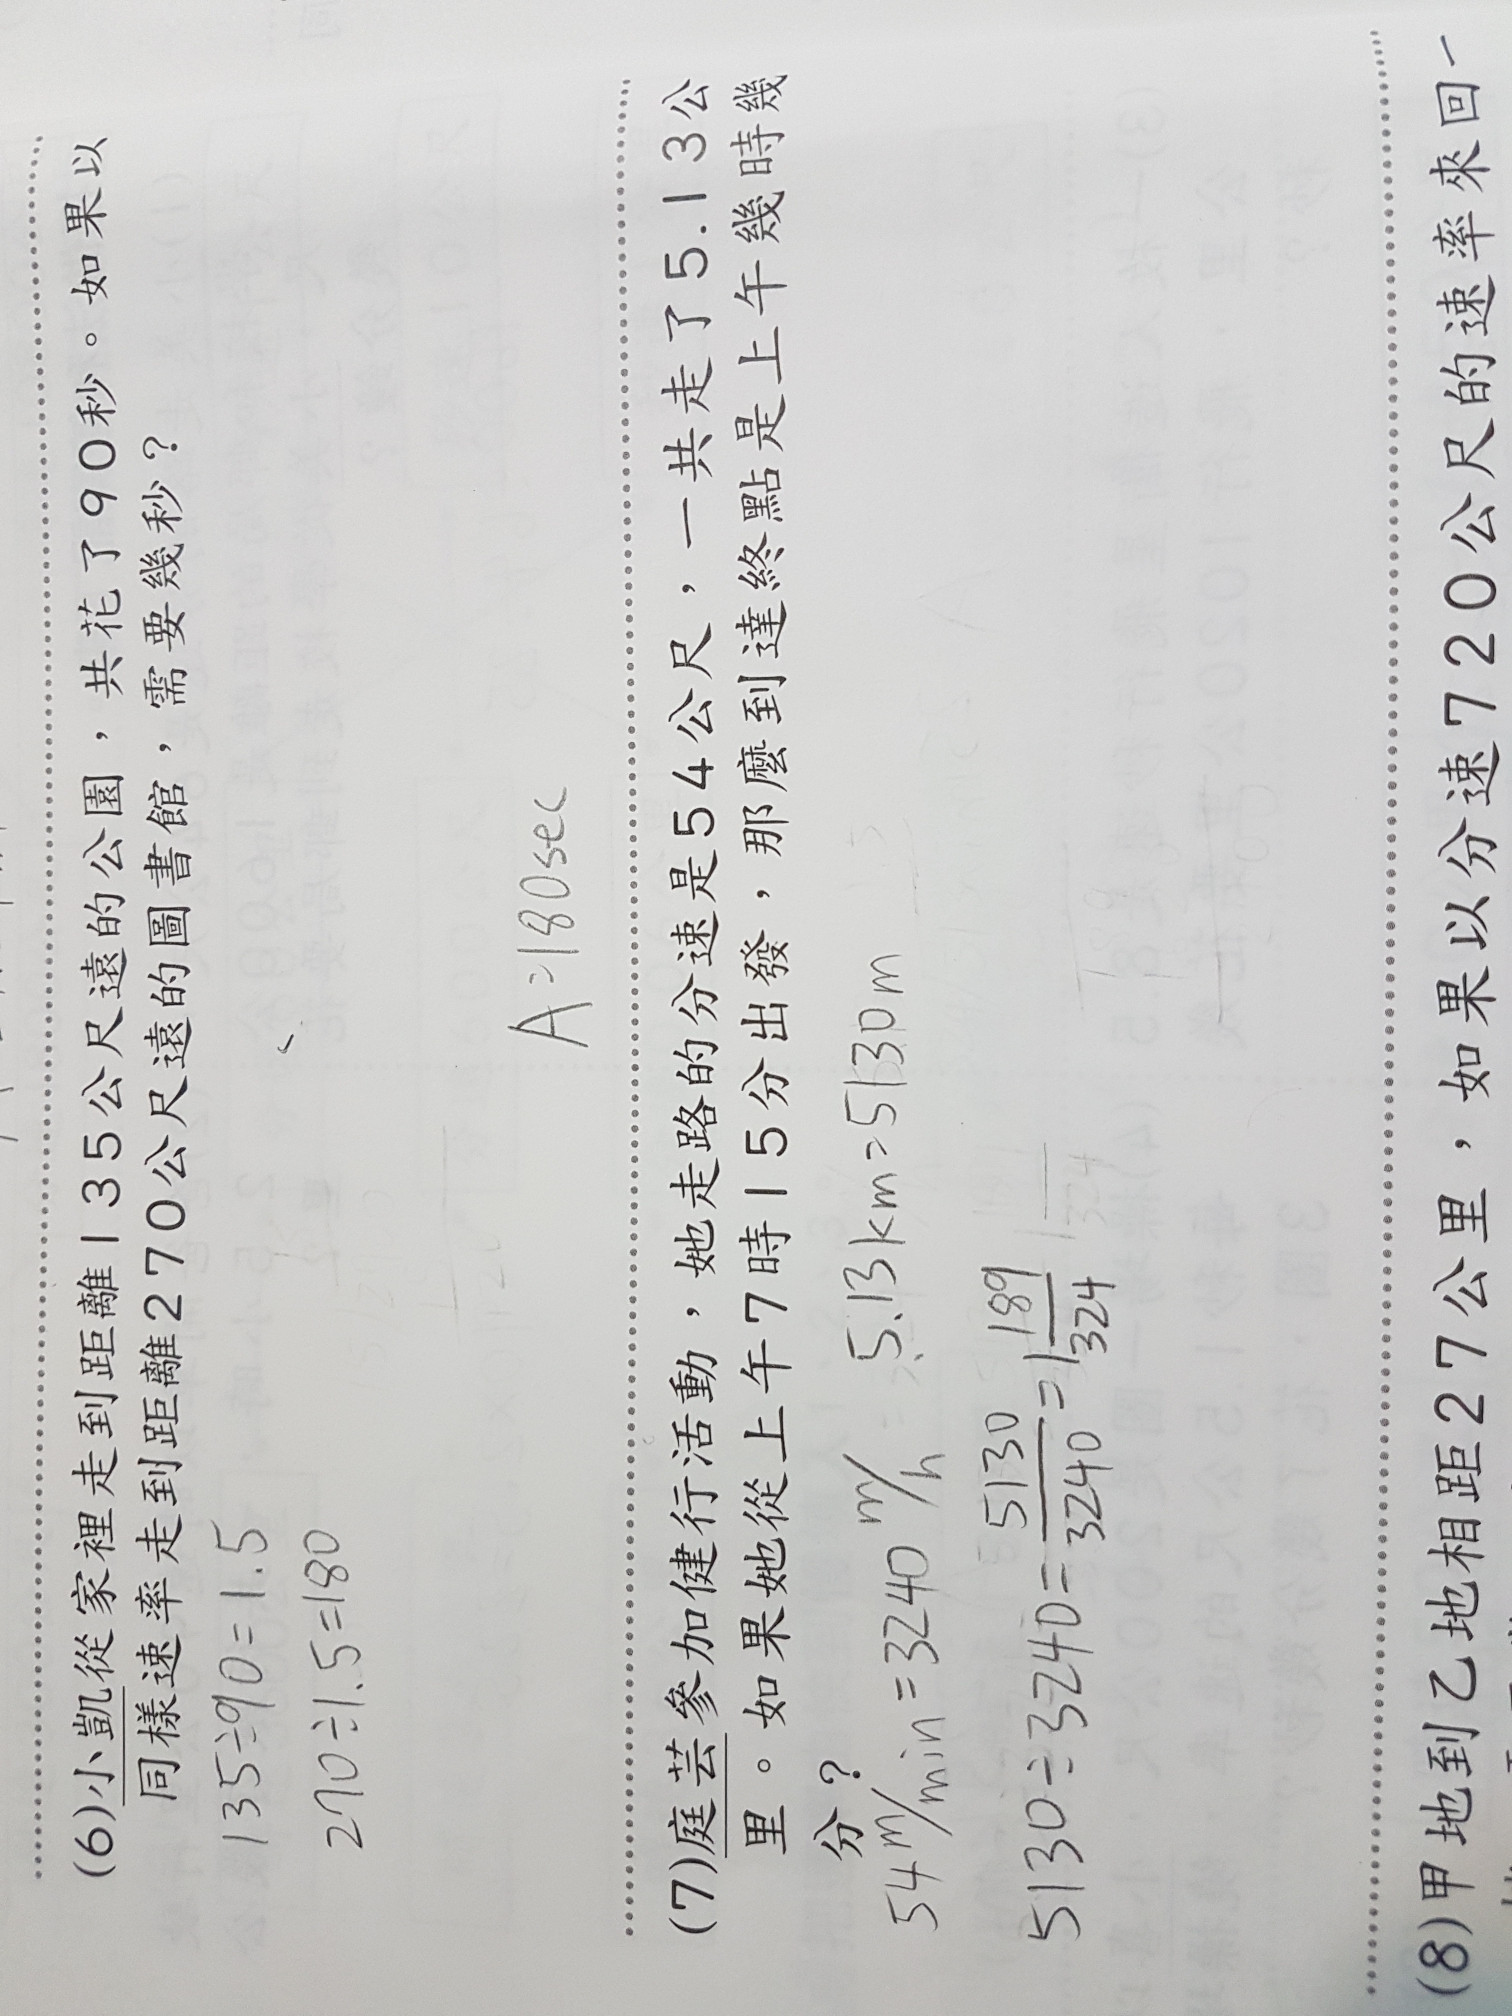 (6)小凱從家裡走到距離135公尺遠的公園，共花了90秒。如果以
同樣速率走到距離270公尺遠的圖書館，需要幾秒？
135÷90=1.5
270÷1.5=180
A=180sec
(7)庭芸參加健行活動，她走路的分速是54公尺，一共走了5.13公
里。如果她從上午7時15分出發，那麼到達終點是上午幾時幾
分？
54m/min=3240m/h 5.13km=5130m
5130÷3240=5130/3240=1 189/324
(8)甲地到乙地相距27公里，如果以分速720公尺的速率來回一